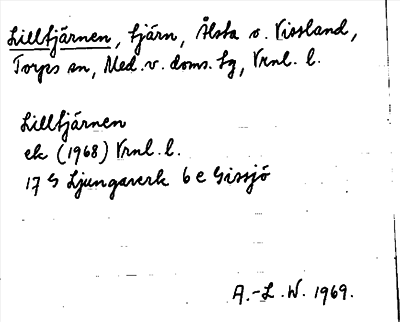 Lilltjärnen, tjärn, Ålsta o. Vissland,
Torps sn, Med. v. doms. tg, Vrnl. l.
Lilltjärnen
ek (1968) Vrnl. l.
17 G Ljungaverk 6 e Gissjö
A.-L. W. 1969.